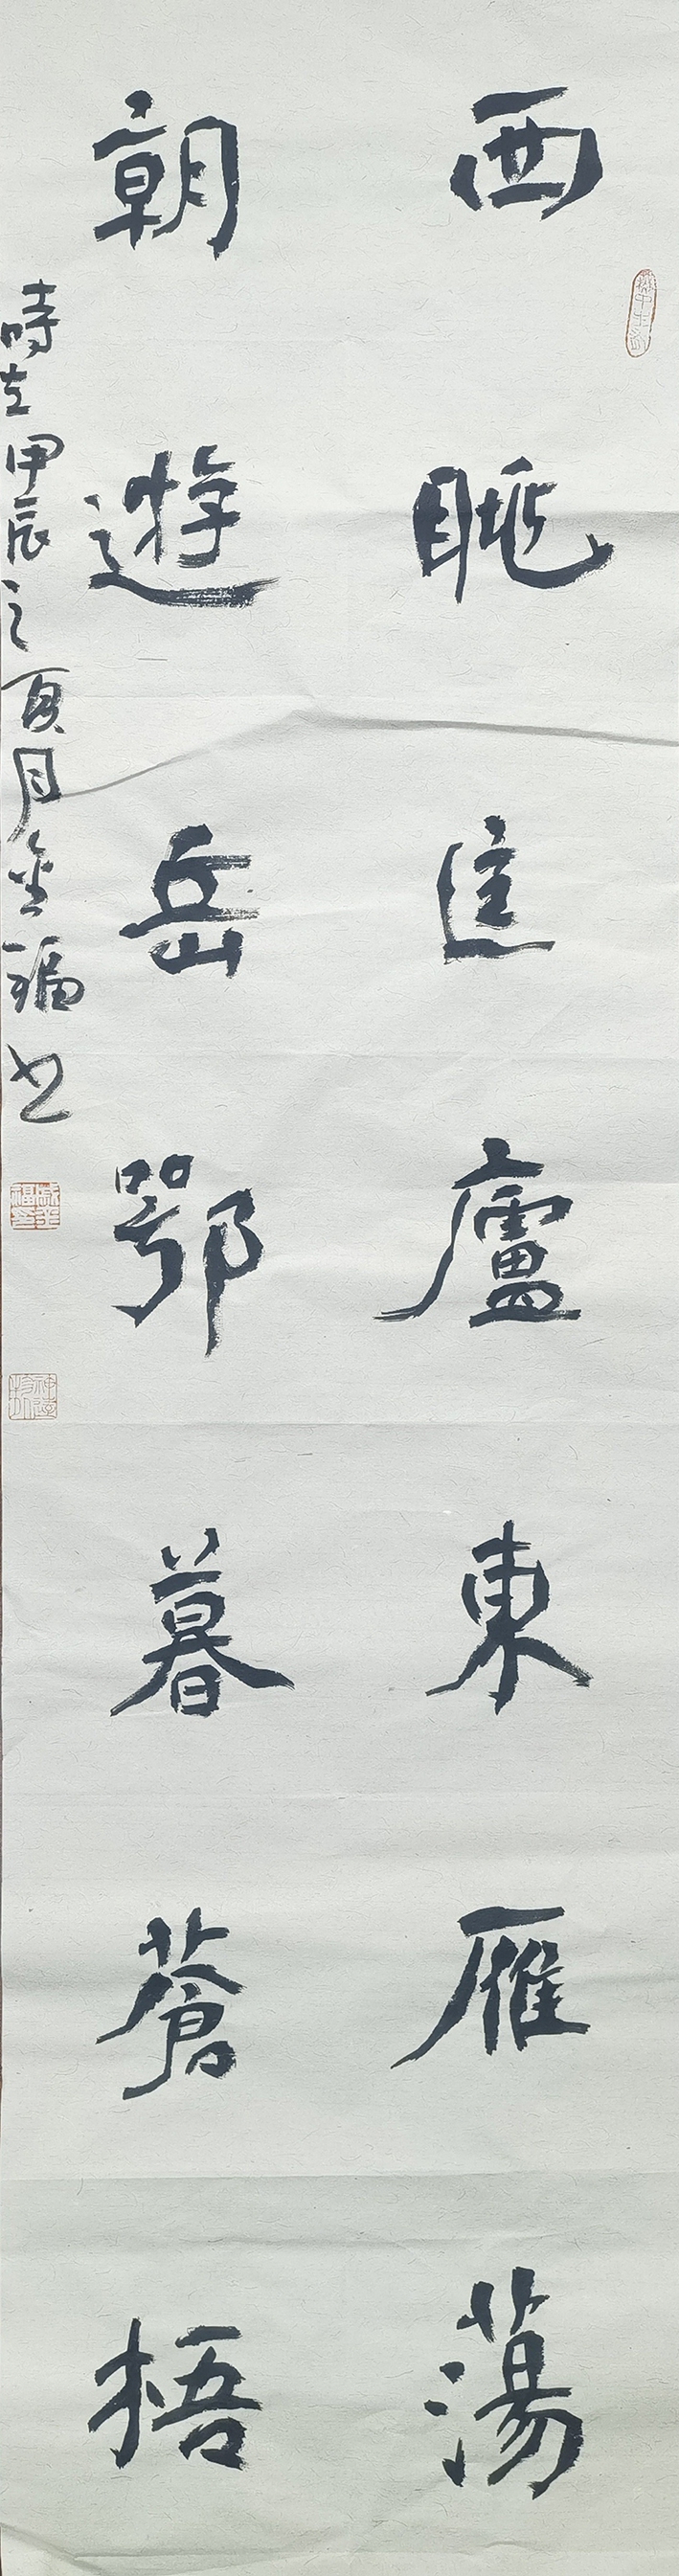 西眺匡廬東雁蕩
朝遊岳鄂暮蒼梧
時在甲辰之夏月金福書